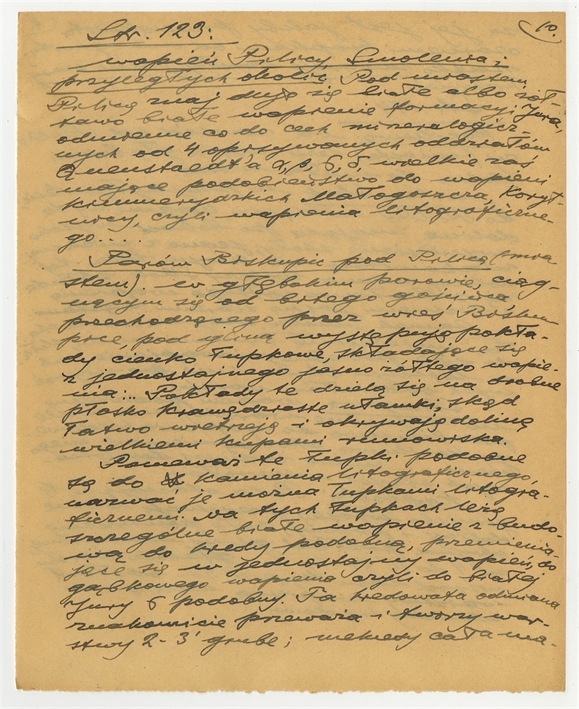 10.
Str. 123:
wapień Pilicy, Smolenia i
przyległych okolic. Pod miastem
Pilicą znajdują się białe albo żół-
tawo białe wapienie formacyi Jura,
odmienne co do cech mineralogicz-
nych od 4 opisywanych oddziałów
Quenstaedt'a α, β, 6, δ, wielkie zaś
mające podobieństwo do wapieni
kimmerydzkich Małogoszcza, Koryt-
nicy, czyli wapienia litograficzne-
go....
Parów Biskupic pod Pilicą (mia
stem). w głębokim parowie, ciąg-
nącym się od bitego gościńca,
przechodzącego przez wieś Bisku
pice, pod gliną występują pokła-
dy cienko łupkowe, składające się
z jednostajnego jasno żółtego wapie-
nia... Pokłady te dzielą się na drobne
płasko krawędziaste ułamki, skąd
łatwo wietrzeją i okrywają dolinę
wielkiemi kupami rumowiska.
Ponieważ te łupki podobne
są do kamienia litograficznego,
nazwać je można łupkami litogra-
ficznemi. Na tych łupkach leżą
szczególne białe wapienie z budo-
wą do kredy podobną, przemienia-
jące się w jednostajny wapień, do
gąbkowego wapienia czyli do białej
Jury 6 podobny. Ta kredowata odmiana
znakomicie przeważa i tworzy war-
stwy 2-3' grube; niekiedy cała ma-